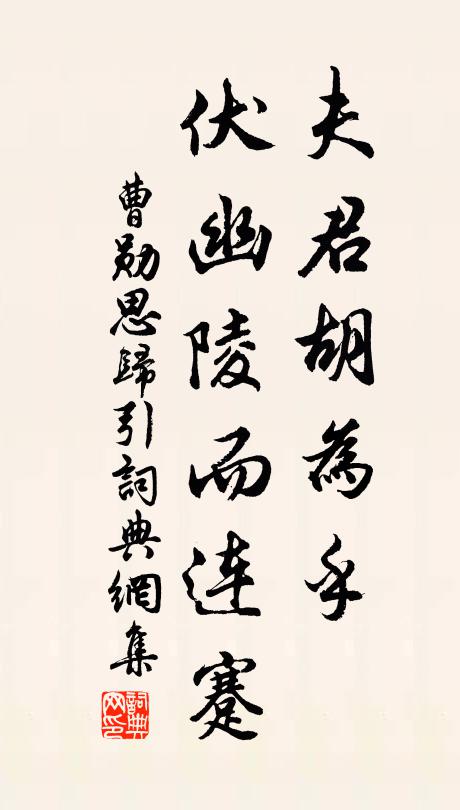 夫君胡為乎
伏幽陵而连蹇
曹勛思歸引詞典網集
詞典网印